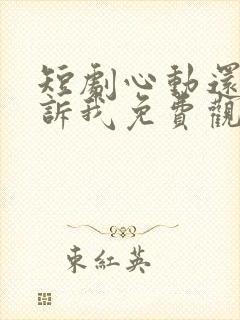 短劇心動還
訴我免費觀
東紅英